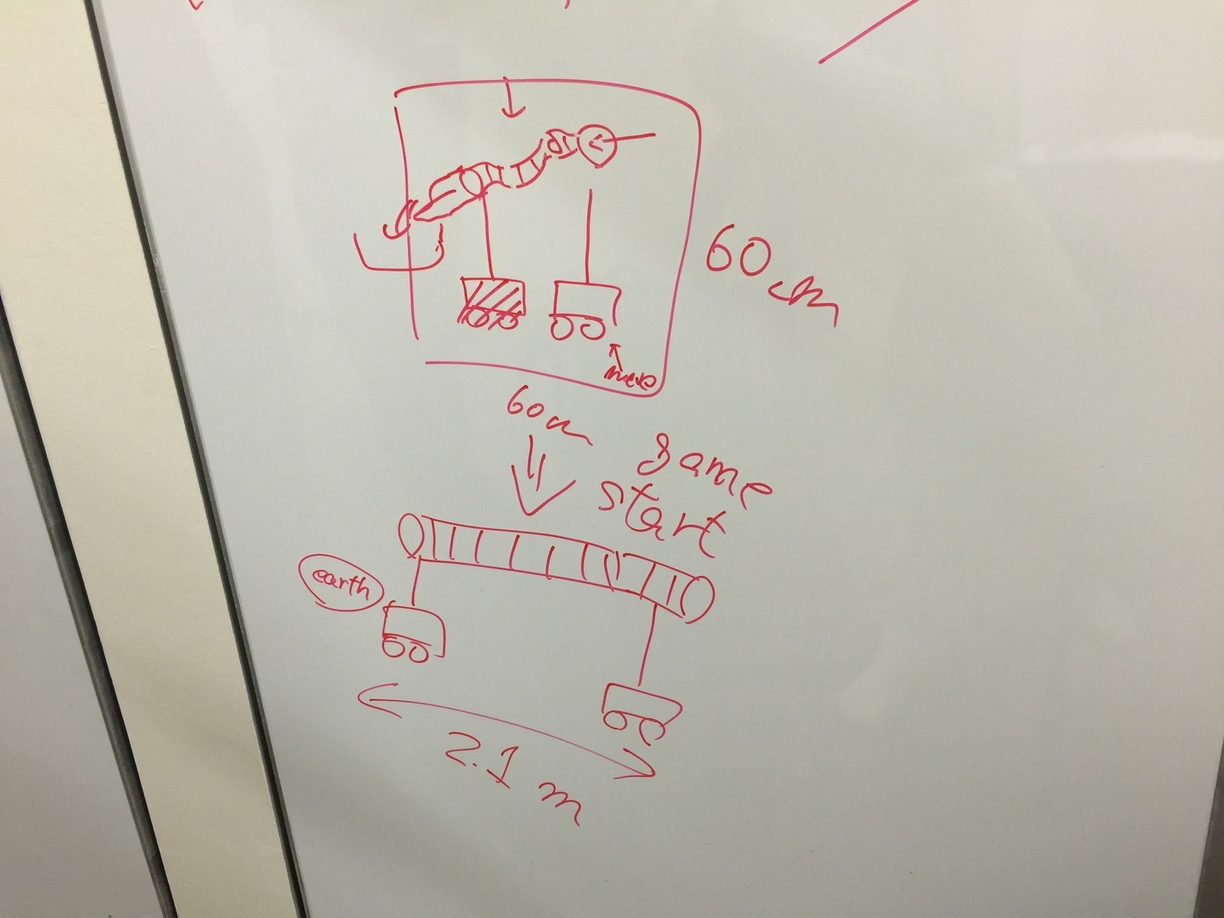 60 cm
move
60 cm
same
start
earth
2.1 m